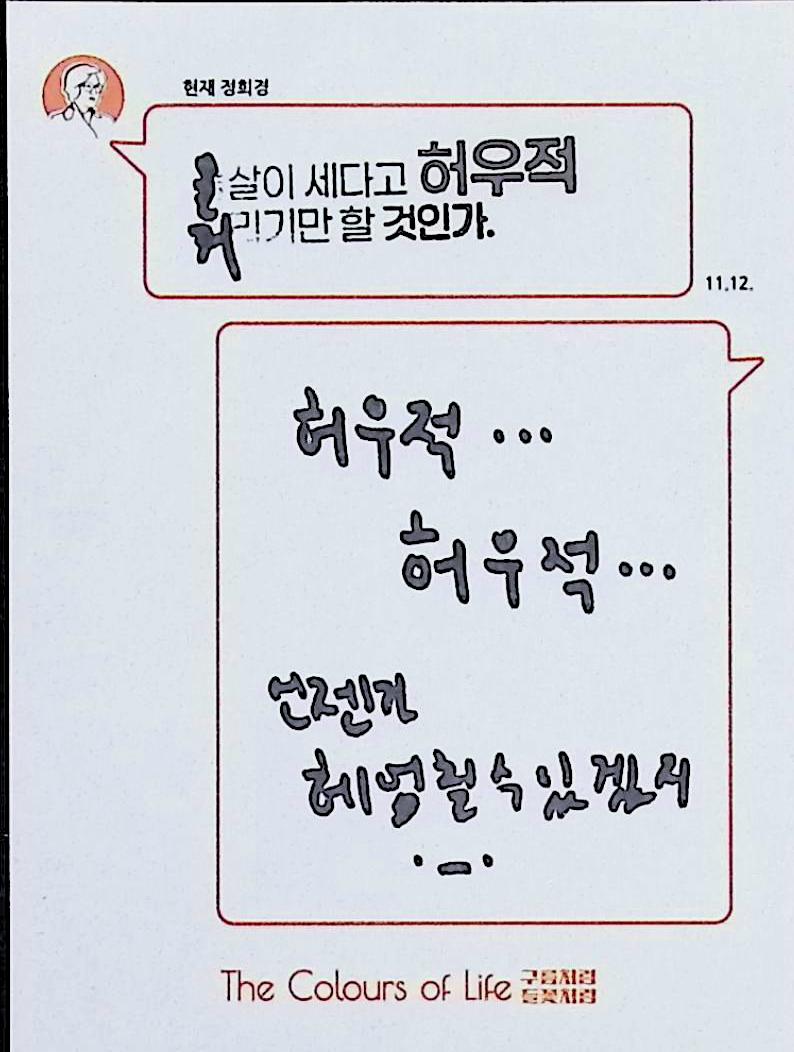 현재 정희경
물살이 세다고 허우적
거리기만 할 것인가.
11.12.
허우적 ...
허우적 ...
언젠간
헤엄칠 수 있겠지
· – ·
The Colours of Life 구름처럼
들꽃처럼